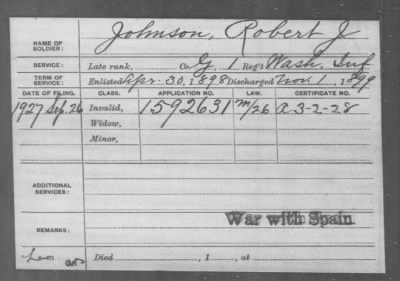 NAME OF SOLDIER: Johnson, Robert J
SERVICE: Late rank, Co. G, 1 Reg't Wash. Inf
TERM OF SERVICE: Enlisted Apr. 30, 1898 Discharged Nov. 1, 1899
DATE OF FILING. CLASS. APPLICATION NO. LAW. CERTIFICATE NO.
1927 Sep. 26 Invalid, 1592631 m/26 A 3-2-28
Widow,
Minor,
ADDITIONAL SERVICES:
War with Spain
REMARKS:
Died , 1 , at